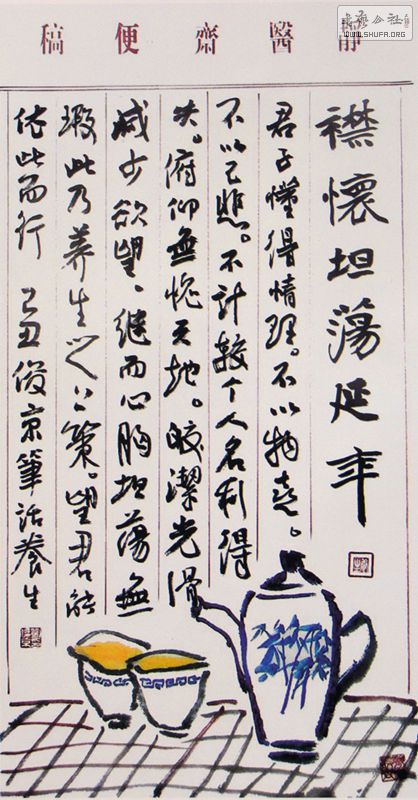 静醫齋便稿
公社
WWW.SHUFR.ORG
襟懷坦蕩延年
君子懂得情理。不以物喜。
不以己悲。不计較个人名利得
失。俯仰無愧天地。皎潔光滑
减少欲望、继而心胸坦蕩無
瑕此乃养生之上策。望君能
依此而行 己丑俊京筆话養生